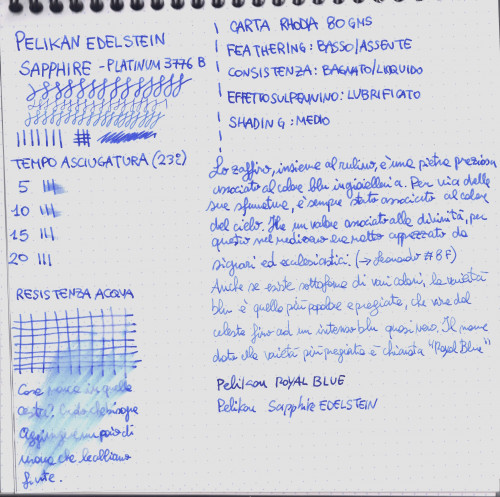 PELIKAN EDELSTEIN
SAPPHIRE - PLATINUM 3776 B
TEMPO ASCIUGATURA (23E)
5
10
15
20
RESISTENZA ACQUA
Cosa manca in quelle
Aggiungere un paio di
uova che le abbiamo
finite.
CARTA RHODIA 80 GMS
FEATHERING: BASSO/ASSENTE
CONSISTENZA: BAGNATO/LIQUIDO
EFFETTO SUL PENNINO: LUBRIFICATO
SHADING: MEDIO
Lo zaffiro, insieme al rubino, è una pietra preziosa
associata al colore blu in gioielleria. Per via delle
sue sfumature, è sempre stato associato al colore
del cielo. Ha un valore associato alle divinità, per
questo nel medioevo era molto apprezzato da
signori ed ecclesiastici. (→ Leonardo #8F)
Anche se esiste sottoforma di vari colori, la varietà
blu è quella più popolare e pregiata, che va dal
celeste fino ad un intenso blu quasi nero. Il nome
dato alla varietà più pregiata è chiamata "Royal Blue"
Pelikan ROYAL BLUE
Pelikan Sapphire EDELSTEIN